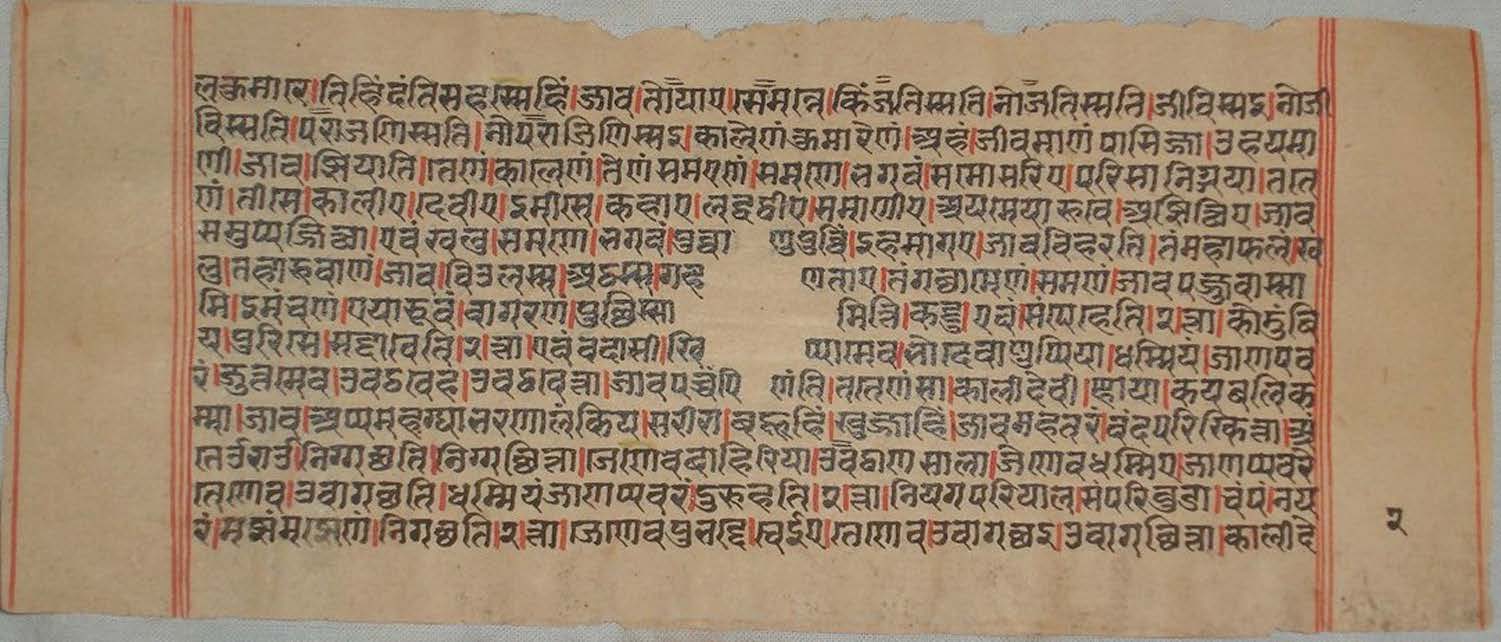 लेकुमारे।तिहिंदंतिसहस्सेहिं।जाव।तोयाए।सेमन्ने।किंजतिस्सति।नोजतिस्सति।जीविस्सइ।नोजी
विस्सति।पराजिणिस्सति।नोपराजिणिस्सइ।कालेणंकुमारेणं।अहं।जीवमाणं।पासिज्जा।उहयमा
णी।जाव।झियाति।तेणं।कालेणं।तेणंसमएणं।समणे।भगवं।समोसरिए।परिसानिग्गया।तते
णं।तीसे।कालीए।देवीए।इमीसे।कहाए।लद्धट्ठीए।समाणीए।अयमेयारूवे।अझिच्छिए।जाव
समुप्पज्जित्था।एवंखलु।समणे।भगवं।पुव्वाणुपुव्विं।इहमागए।जावविहरति।तंमहाफलंख
लु।तहारूवाणं।जाव।विउलस्स।अट्ठस्स।गहणताए।तंगच्छामिणं।समणं।जावपज्जुवास्सा
मि।इमंचणं।एयारूवं।वागरणं।पुच्छिस्सामित्ति।कट्टु।एवंसंपेहेति।२त्ता।कोडुंबि
य।पुरिसे।सद्दावेति।२त्ता।एवंवदासी।खिप्पामेव।भोदेवाणुप्पिया।धम्मियं।जाणपव
रं।जुत्तमेव।उवट्ठवेह।उवट्ठवित्ता।जावपच्चप्पिणंति।ततेणंसा।कालीदेवी।ण्हाया।कयबलिक
म्मा।जाव।अप्पमहग्घाभरणालंकिय।सरीरा।बहूहिं।खुज्जाहिं।जावमहतरवंदपरिखित्ता।अं
तेउराउ।निग्गच्छति।निग्गच्छित्ता।जेणेवबाहिरिया।उवट्ठाणसाला।जेणेवधम्मिए।जाणप्पवरे
तेणेव।उवागच्छति।धम्मियंजाणप्पवरं।दुरुहति।२त्ता।नियगपरियाल।संपरिवुडा।चंपंनय
रं।मज्झंमज्झेणं।निगच्छति।२त्ता।जेणेवपुन्नभद्दे।चेईए।तेणेव।उवागच्छइ।उवागच्छित्ता।कालीदे
२